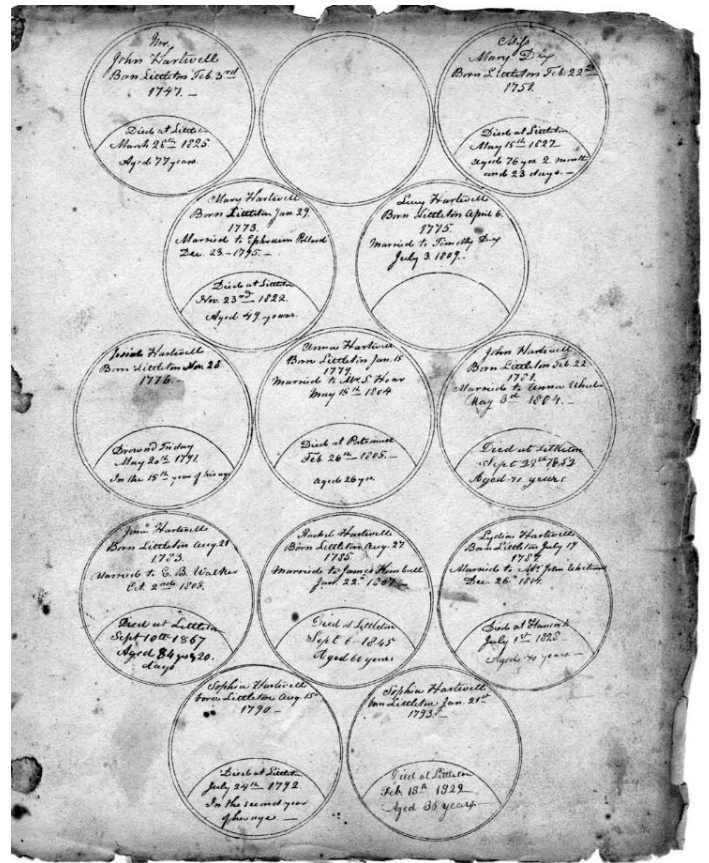 Mr.
John Hartwell
Born Littleton Feb. 3rd
1747. —
Died at Littleton
March 28th 1825
Aged 77 years
Miss
Mary Dix
Born Littleton Feb. 22nd
1751.
Died at Littleton
May 15th 1827
aged 76 yrs 2 month
and 23 days. —
Mary Hartwell
Born Littleton Jan 29.
1773.
Married to Ephraim Pollard
Dec. 23 - 1795. —
Died at Littleton
Nov. 23rd 1822
Aged 49 years.
Lucy Hartwell
Born Littleton April 6.
1775.
Married to Timothy Dix
July 3. 1809.
Josiah Hartwell
Born Littleton Nov. 25
1776.
Drown'd Friday
May 20th 1791.
In the 15th year of his age
Anna Hartwell
Born Littleton Jan. 15
1779.
Married to Mr. S. Hoar
May 15th 1804
Died at
Feb. 26th 1805. —
aged 26 yrs.
John Hartwell
Born Littleton Feb. 22.
1781.
Married to Anna
May 3d 1804. —
Died at Littleton
Sept 28th 1852
Aged 71 years
Hartwell
Born Littleton Aug. 21
1783.
Married to E. B. Walker
Oct. 2nd 1808.
Died at Littleton
Sept 10th 1867
Aged 84 yrs 20.
days
Rachel Hartwell
Born Littleton Aug. 27
1785.
Married to James Kimball
Jan. 22d 1807.
Died at Littleton
Sept 6 - 1845
Aged 60 years
Lydia Hartwell
Born Littleton July 17
1787.
Married to Mr. John
Dec. 26th 1814.
Died at Hancock
July 1st 1828
Aged years —
Sophia Hartwell
born Littleton Aug. 15th
1790. —
Died at Littleton
July 24th 1792
In the second year
of her age —
Sophia Hartwell
born Littleton Jan. 21st
1793. —
Died at Littleton
Feb. 18th 1829
Aged 36 years